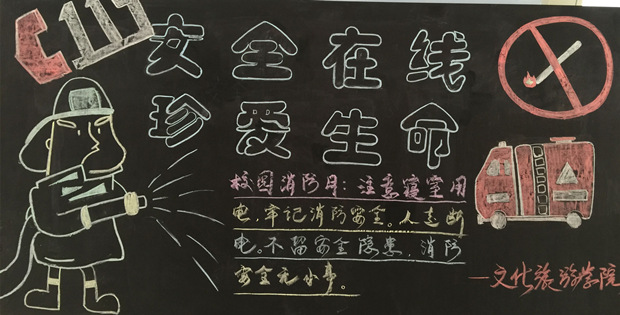 119
安全在线
珍爱生命
校园消防月：注意寝室用
电，牢记消防安全。人走断
电。不留安全隐患，消防
安全无小事。
—文化旅游学院